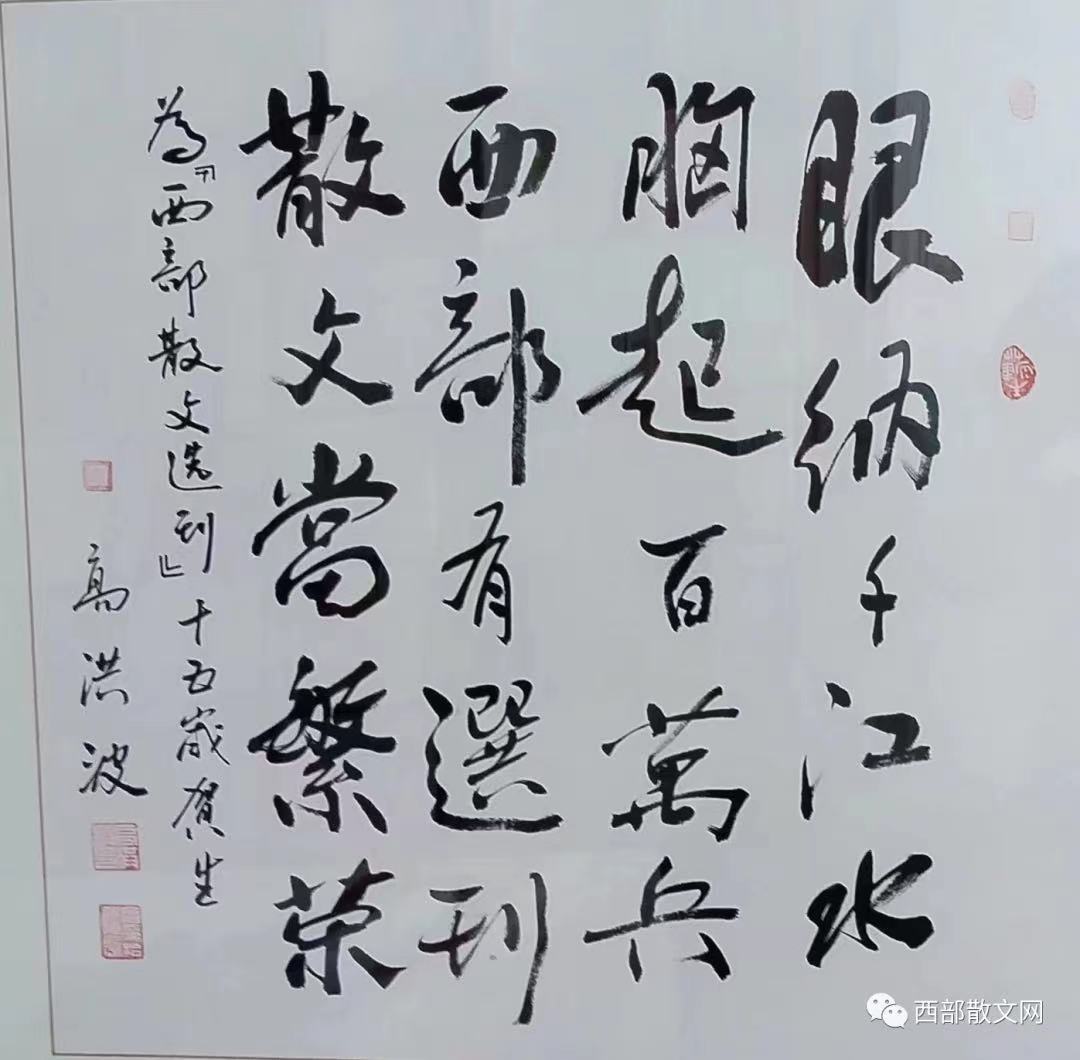 眼纳千江水
胸起百萬兵
西部有選刊
散文當繁荣
为『西部散文选刊』十五岁贺生
高洪波
西部散文网